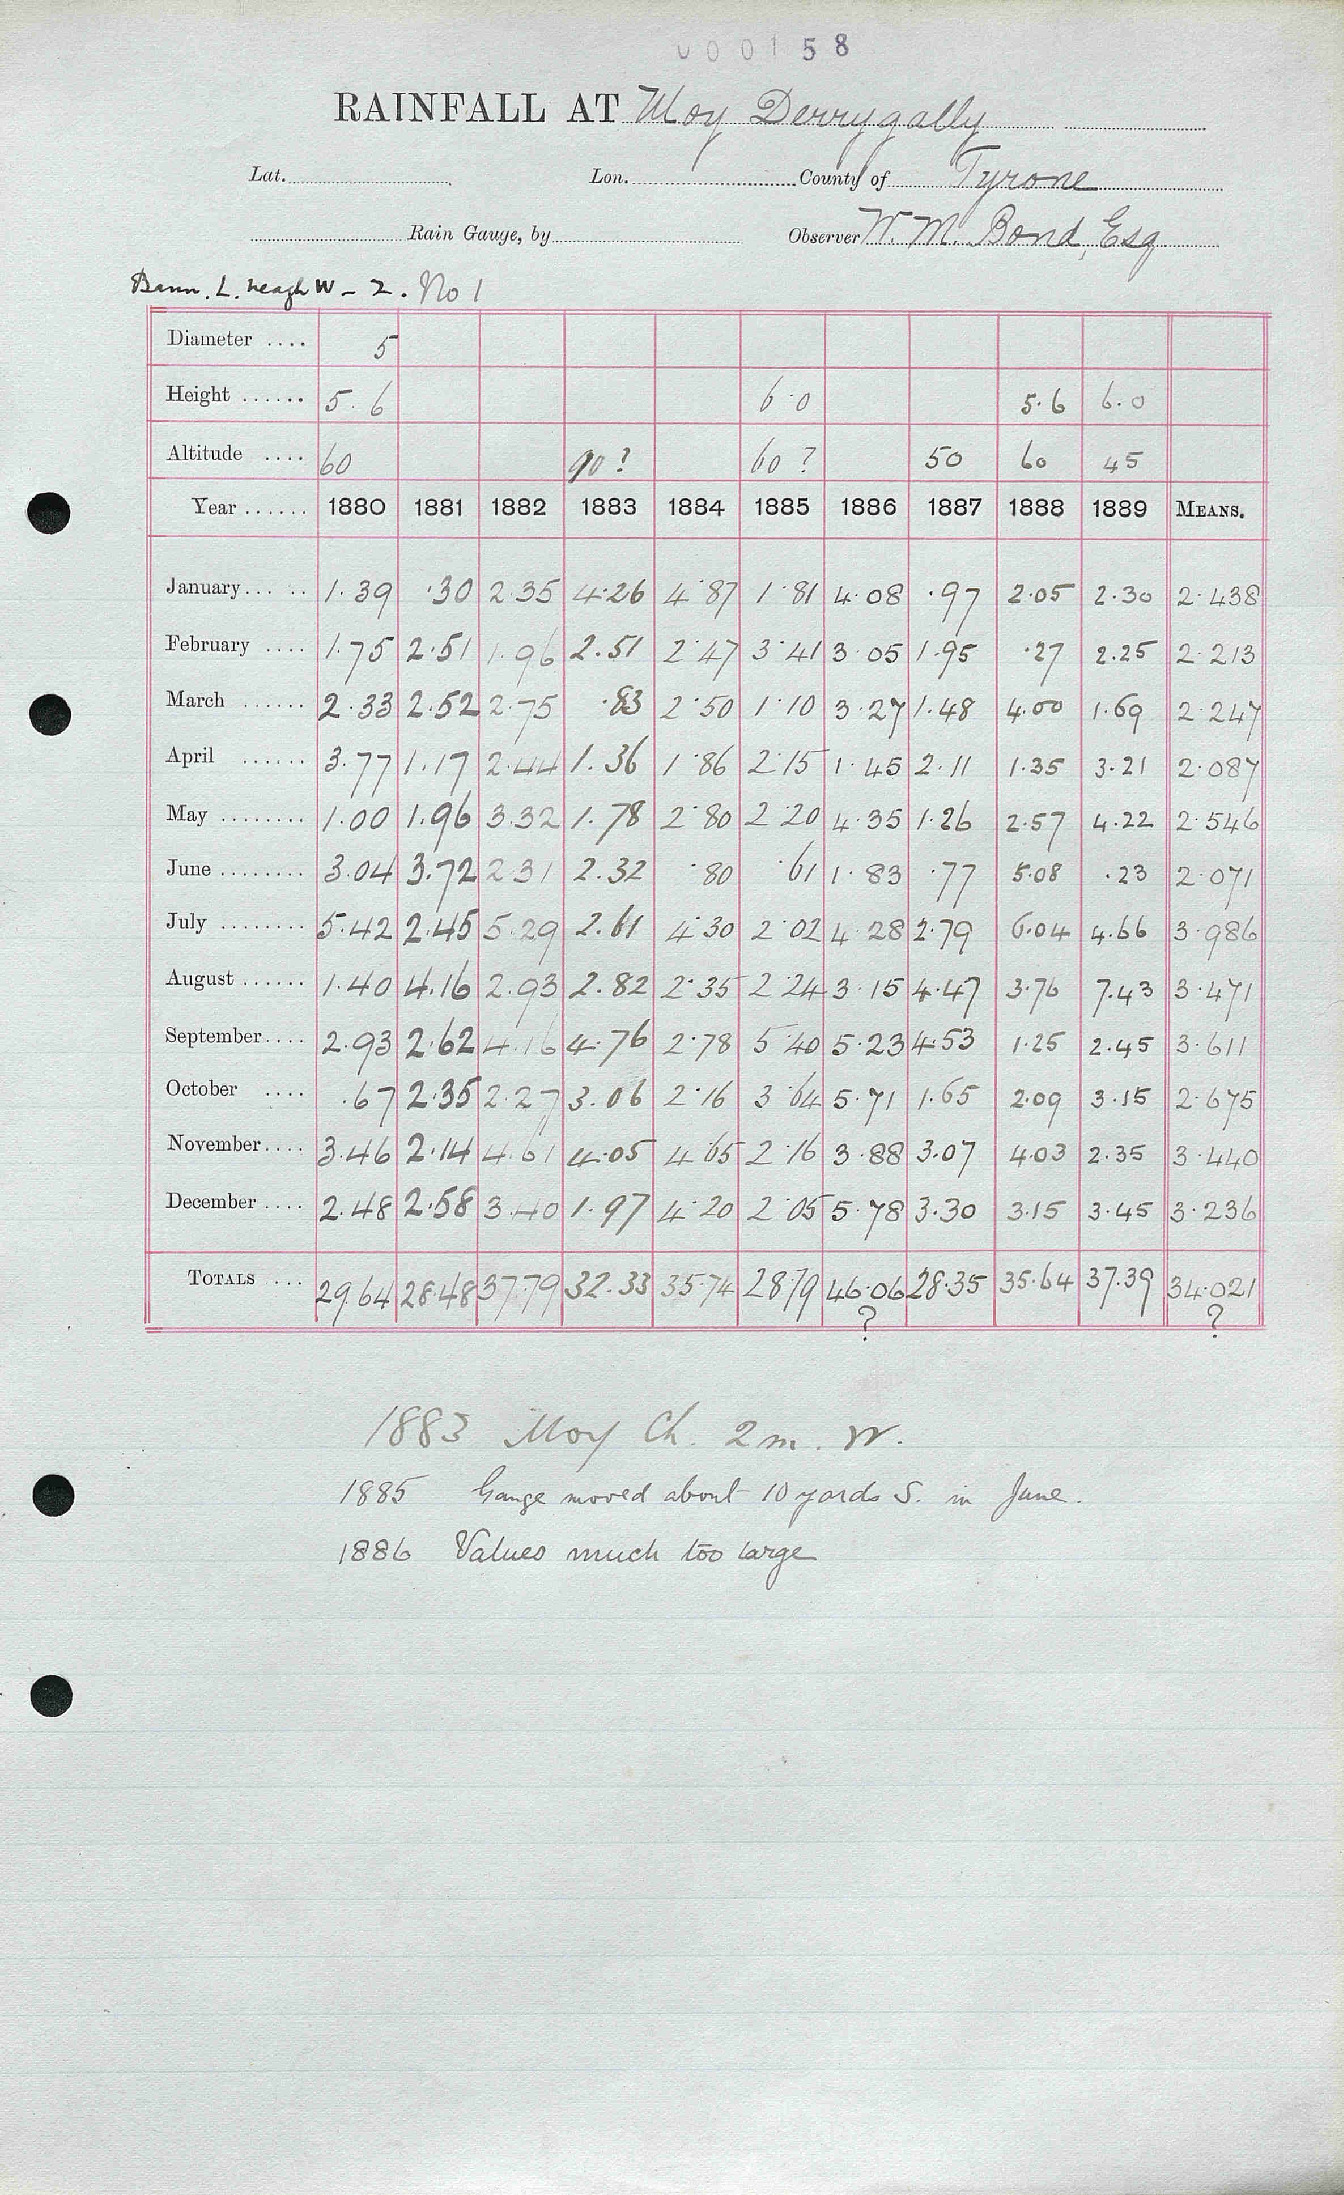 000158
RAINFALL AT Moy Derrygally
Lat. Lon. County of Tyrone
Rain Gauge, by Observer W. M. Bond, Esq
Bann. L. Neagh W - 2. No 1
Diameter .... 5
Height ...... 5.6 6.0 5.6 6.0
Altitude .... 60 90? 60? 50 60 45
Year ...... 1880 1881 1882 1883 1884 1885 1886 1887 1888 1889 MEANS.
January ... .. 1.39 .30 2.35 4.26 4.87 1.81 4.08 .97 2.05 2.30 2.438
February .... 1.75 2.51 1.96 2.51 2.47 3.41 3.05 1.95 .27 2.25 2.213
March ...... 2.33 2.52 2.75 .83 2.50 1.10 3.27 1.48 4.00 1.69 2.247
April ...... 3.77 1.17 2.44 1.36 1.86 2.15 1.45 2.11 1.35 3.21 2.087
May ........ 1.00 1.96 3.32 1.78 2.80 2.20 4.35 1.26 2.57 4.22 2.546
June ........ 3.04 3.72 2.31 2.32 .80 .61 1.83 .77 5.08 .23 2.071
July ........ 5.42 2.45 5.29 2.61 4.30 2.02 4.28 2.79 6.04 4.66 3.986
August ...... 1.40 4.16 2.93 2.82 2.35 2.24 3.15 4.47 3.76 7.43 3.471
September .... 2.93 2.62 4.16 4.76 2.78 5.40 5.23 4.53 1.25 2.45 3.611
October .... .67 2.35 2.27 3.06 2.16 3.64 5.71 1.65 2.09 3.15 2.675
November .... 3.46 2.14 4.61 4.05 4.65 2.16 3.88 3.07 4.03 2.35 3.440
December .... 2.48 2.58 3.40 1.97 4.20 2.05 5.78 3.30 3.15 3.45 3.236
TOTALS ... 29.64 28.48 37.79 32.33 35.74 28.79 46.06 28.35 35.64 37.39 34.021
? ?
1883 Moy Ch. 2 m. W.
1885 Gauge moved about 10 yards S. in June.
1886 Values much too large